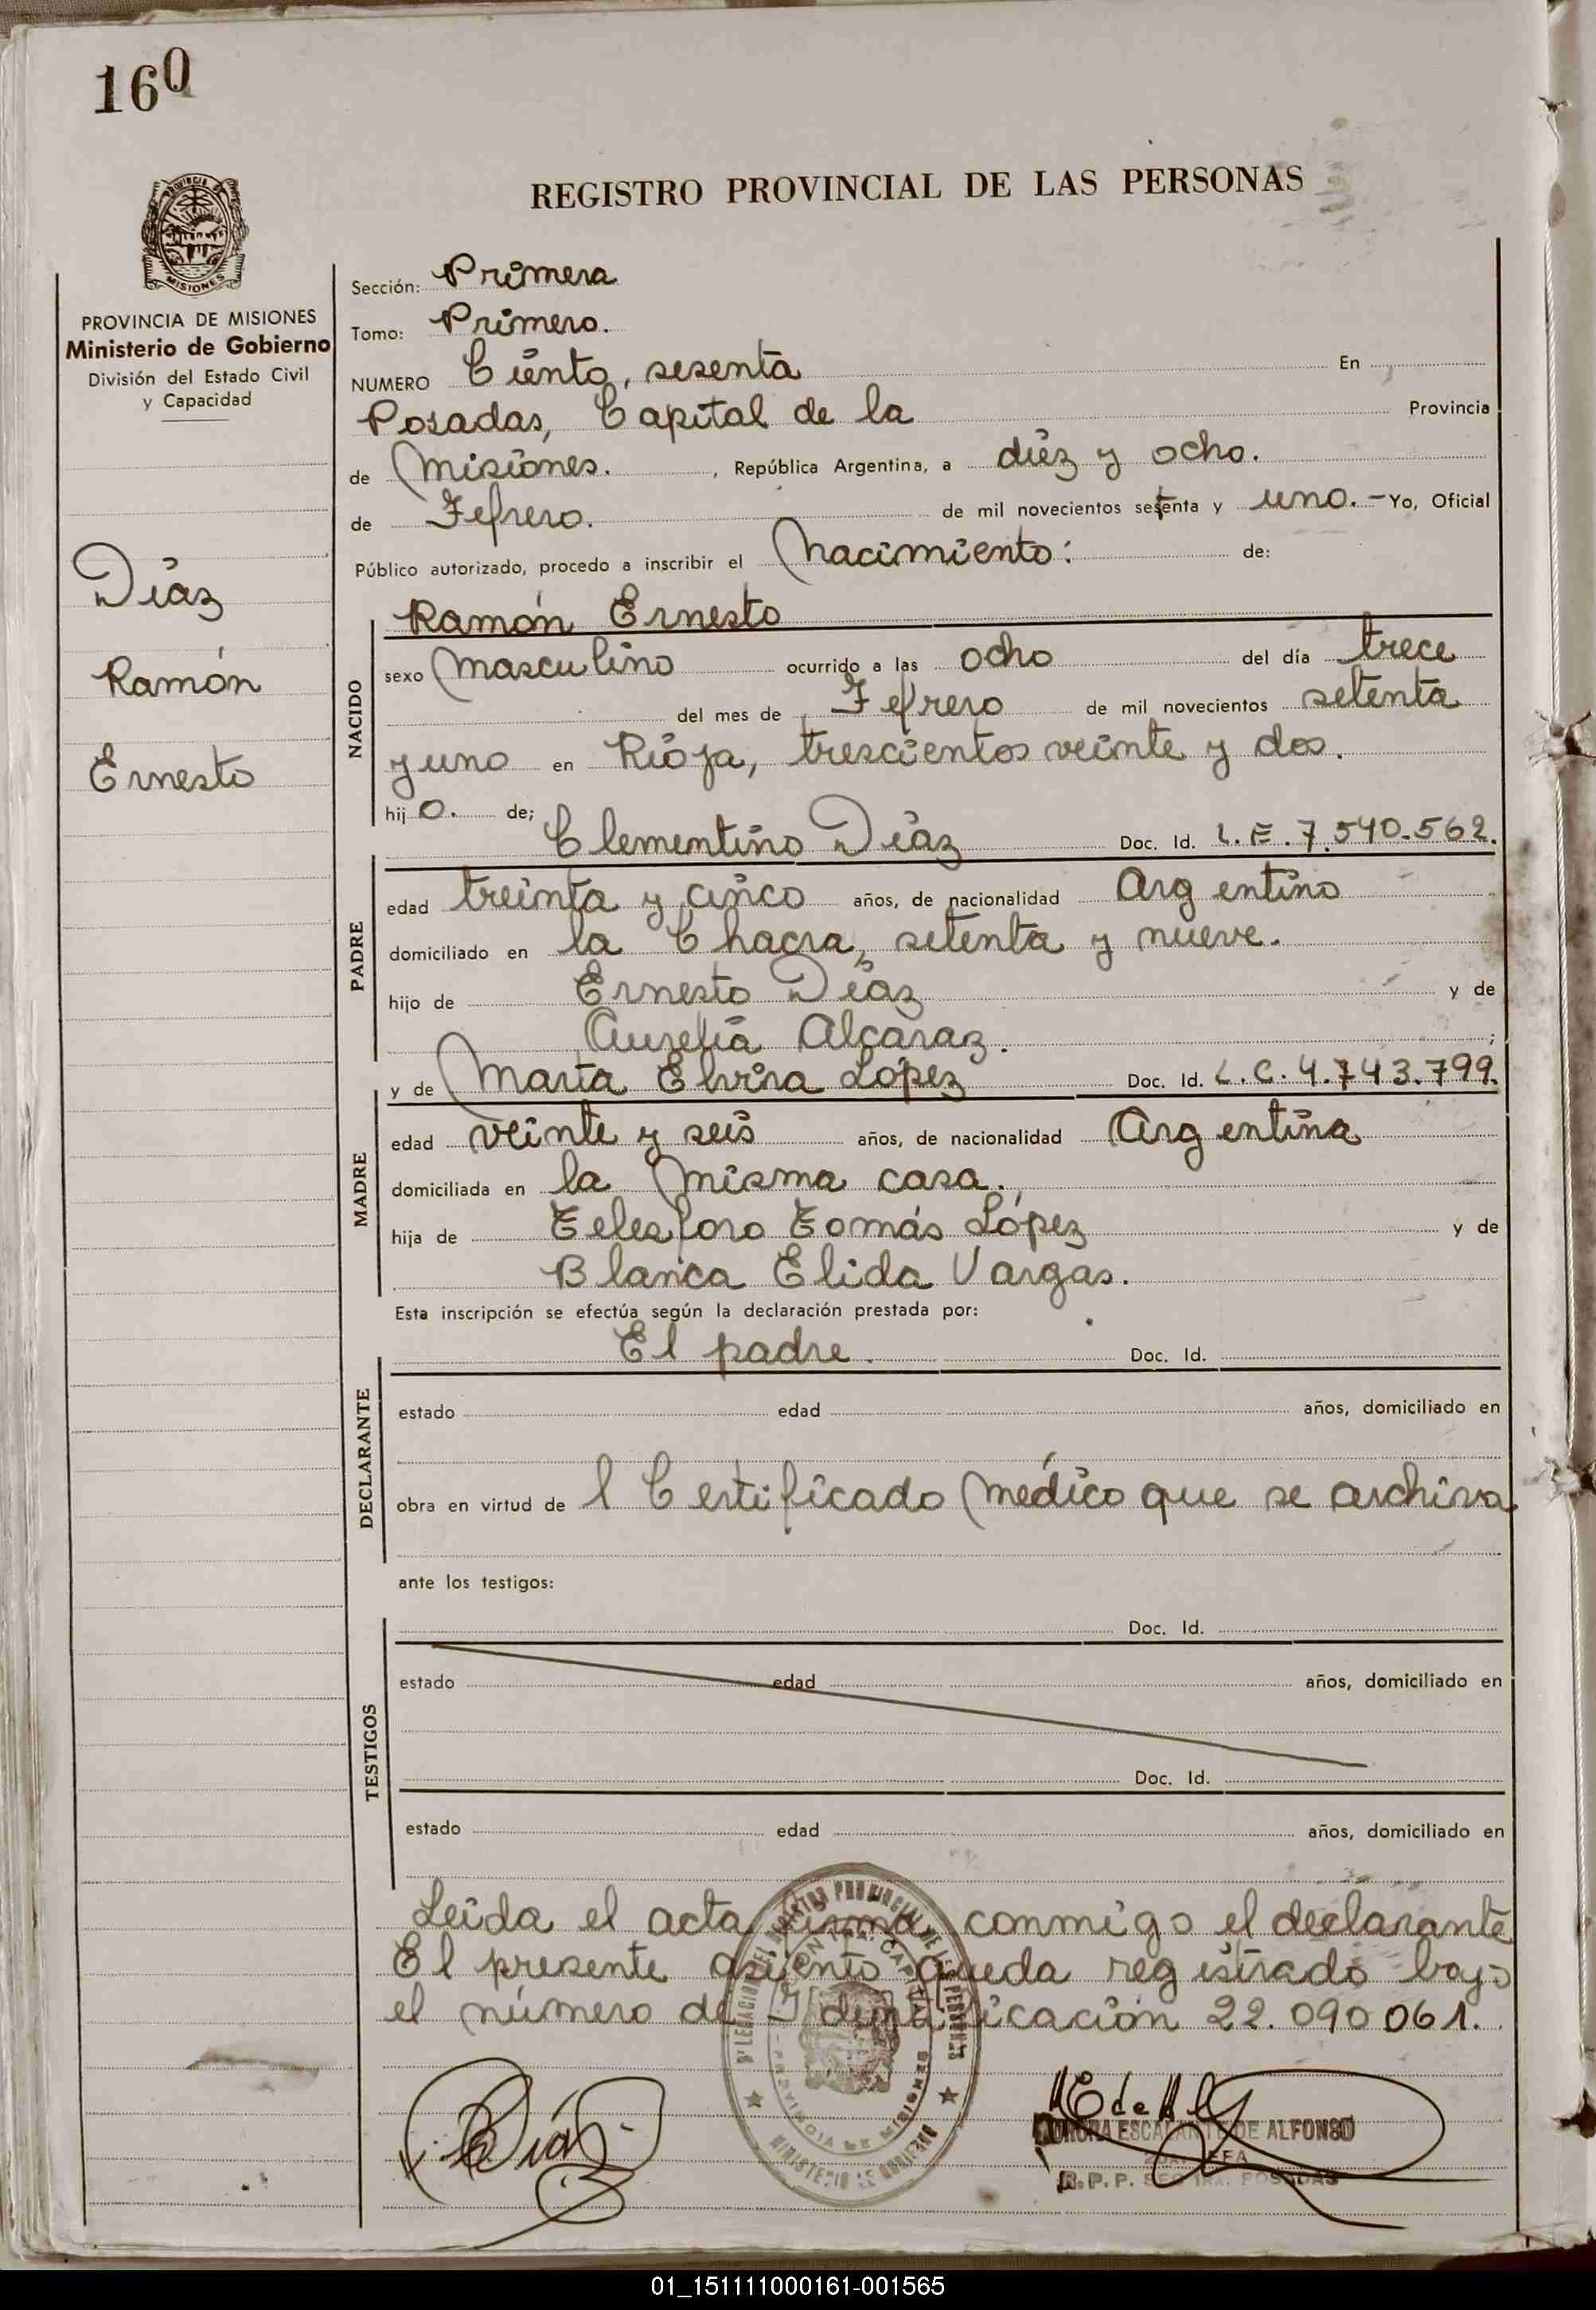 160
PROVINCIA DE
MISIONES
REGISTRO PROVINCIAL DE LAS PERSONAS
PROVINCIA DE MISIONES
Ministerio de Gobierno
División del Estado Civil
y Capacidad
Díaz
Ramón
Ernesto
Sección: Primera
Tomo: Primero.
NUMERO Ciento, sesenta En
Posadas, Capital de la Provincia
de Misiones. , República Argentina, a diez y ocho.
de Febrero. de mil novecientos setenta y uno. - Yo, Oficial
Público autorizado, procedo a inscribir el Nacimiento: de:
NACIDO
Ramón Ernesto
sexo Masculino ocurrido a las ocho del día trece
del mes de Febrero de mil novecientos setenta
y uno en Rioja, trescientos veinte y dos.
hijo. de;
Clementino Díaz Doc. Id. L.E. 7.540.562.
PADRE
edad treinta y cinco años, de nacionalidad Argentino
domiciliado en la Chacra, setenta y nueve.
hijo de Ernesto Díaz y de
Aurelia Alcaraz. ;
y de Marta Elvira López Doc. Id. L.C. 4.743.799.
MADRE
edad veinte y seis años, de nacionalidad Argentina
domiciliada en la misma casa.
hija de Telesforo Tomás López y de
Blanca Elida Vargas.
Esta inscripción se efectúa según la declaración prestada por:
El padre. Doc. Id.
DECLARANTE
estado edad años, domiciliado en
obra en virtud de l Certificado médico que se archiva
ante los testigos:
Doc. Id.
TESTIGOS
estado edad años, domiciliado en
Doc. Id.
estado edad años, domiciliado en
Leída el acta firma conmigo el declarante
El presente asiento queda registrado bajo
el número de Identificación 22.090.061.
PROVINCIA DE MISIONES
MINISTERIO DE GOBIERNO
Díaz
ESCALANTE DE ALFONSO
JEFA
R.P.P. SEC 1RA. POSADAS
01_151111000161-001565